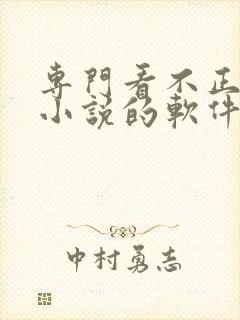 専門看不正
小説的軟件
中村勇志